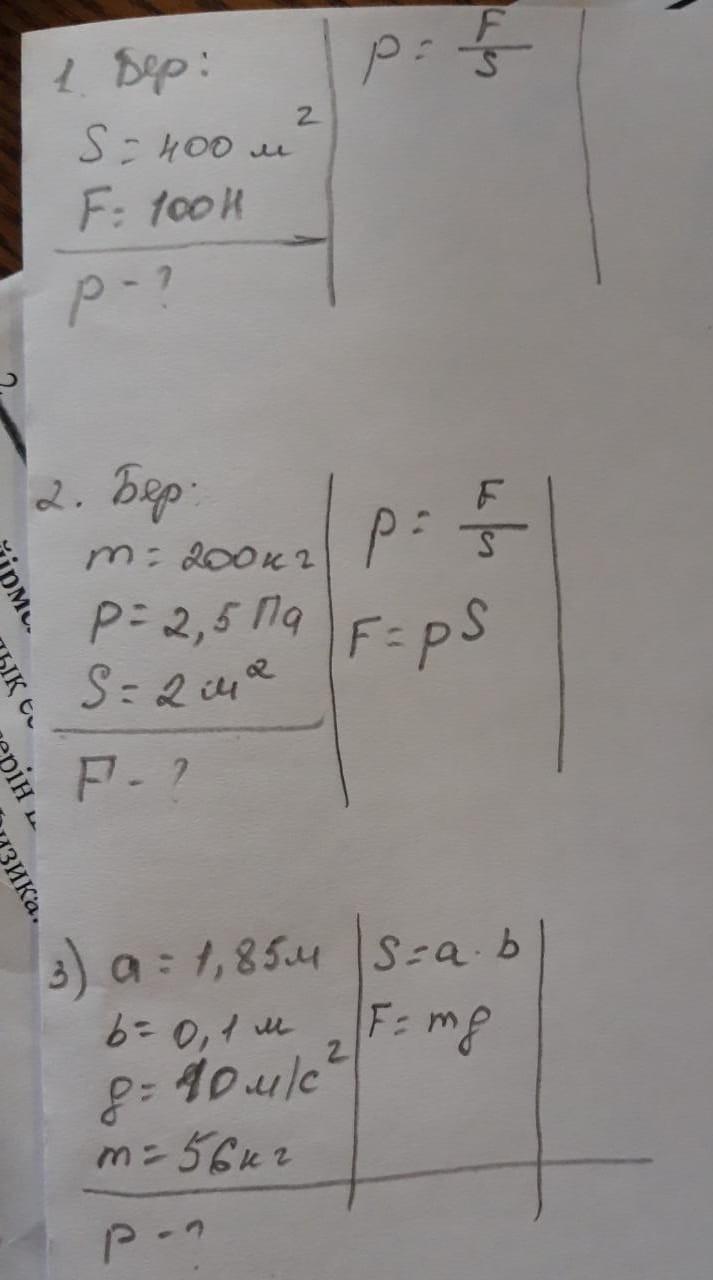 1. Бер:
S = 400 м²
F = 100 Н
p - ?
p = F/S
2. Бер:
m = 200 кг
p = 2,5 Па
S = 2 м²
F - ?
p = F/S
F = pS
3) a = 1,85 м
b = 0,1 м
g = 10 м/с²
m = 56 кг
p - ?
S = a · b
F = mg
изика.